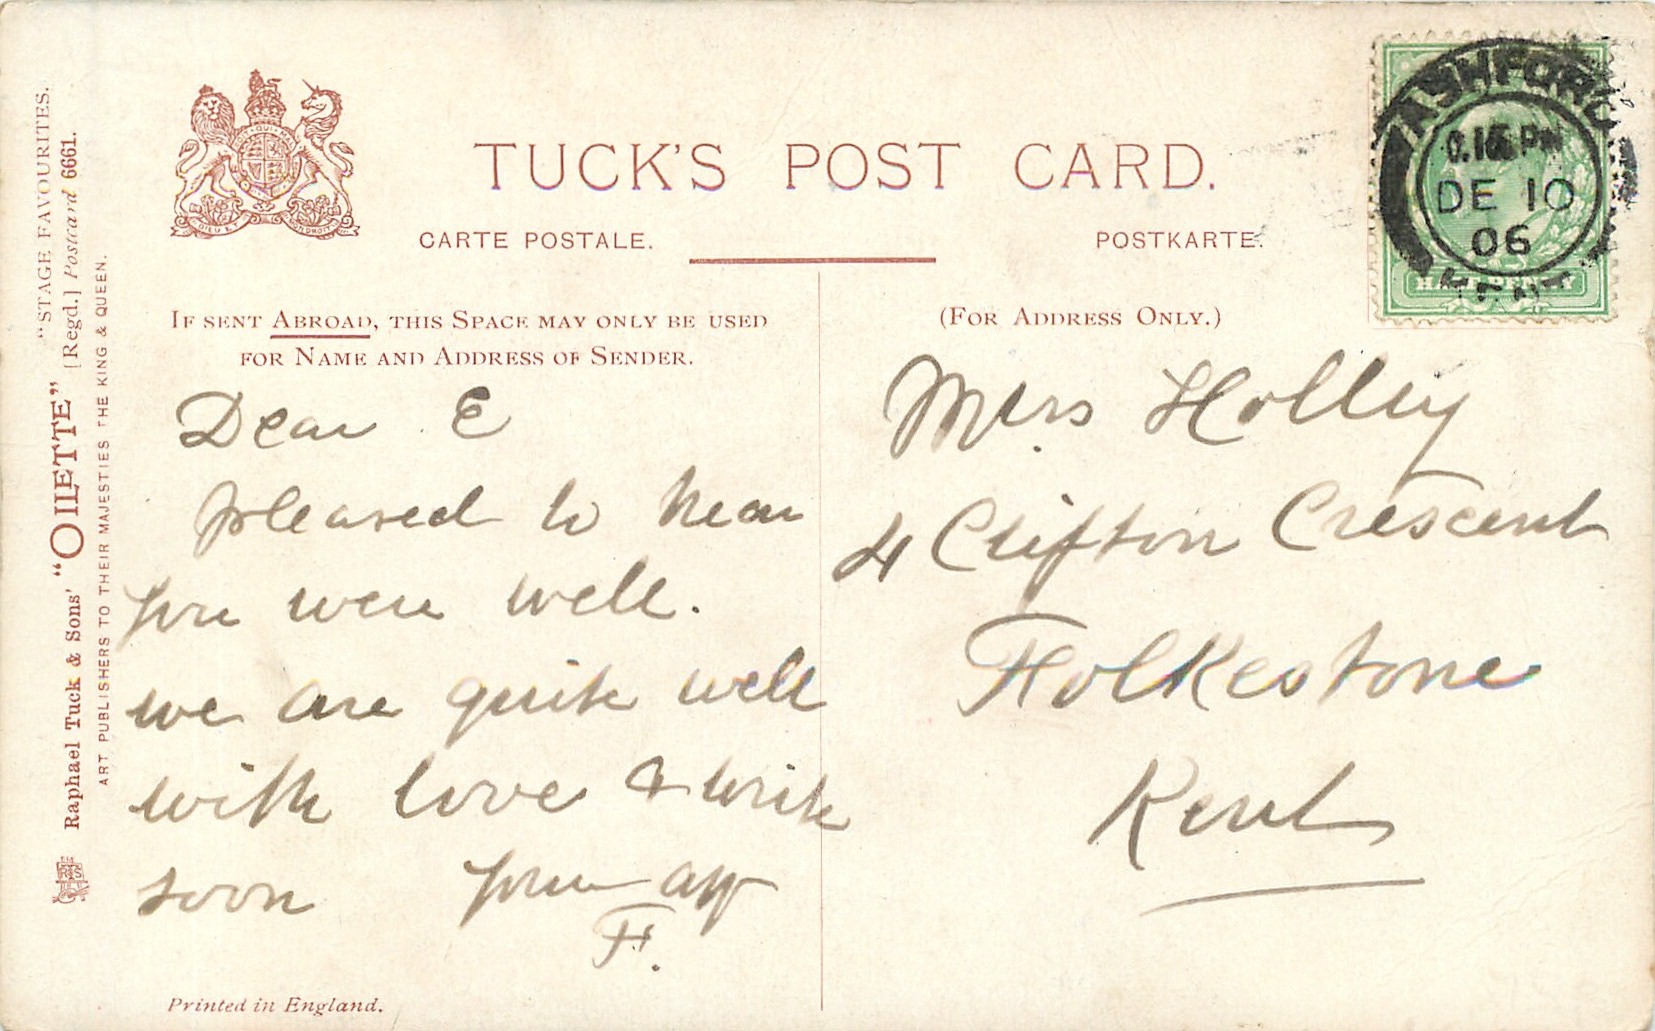 TUCK'S POST CARD.
CARTE POSTALE.
POSTKARTE.
IF SENT ABROAD, THIS SPACE MAY ONLY BE USED
FOR NAME AND ADDRESS OF SENDER.
(FOR ADDRESS ONLY.)
Dear E
pleased to hear
you were well.
we are quite well
with love & write
soon your aff
F.
Mrs Holley
4 Clifton Crescent
Folkestone
Kent
ASHFORD
DE 10
06
KENT
HALFPENNY
DIEU ET MON DROIT
"STAGE FAVOURITES.
Raphael Tuck & Sons' "OILETTE" [Regd.] Postcard 6661.
ART PUBLISHERS TO THEIR MAJESTIES THE KING & QUEEN.
Printed in England.